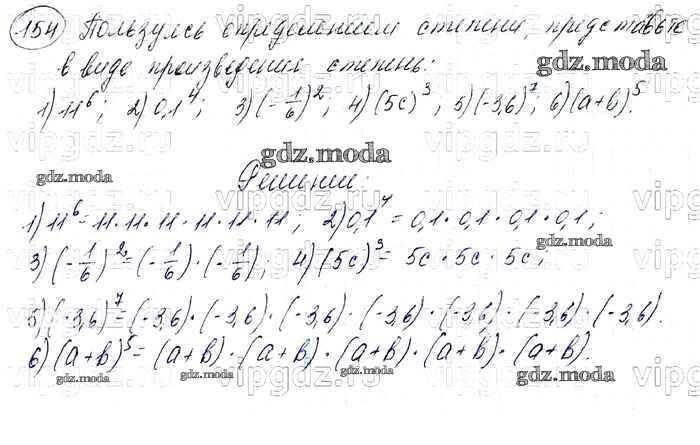 154 Пользуясь определением степени, представьте
в виде произведения степень:
1) 11^6; 2) 0,1^4; 3) (-1/6)^2; 4) (5c)^3; 5) (-3,6)^7; 6) (a+b)^5.
gdz.moda
gdz.moda
gdz.moda
Решение:
1) 11^6 = 11·11·11·11·11·11; 2) 0,1^4 = 0,1·0,1·0,1·0,1;
gdz.moda
3) (-1/6)^2 = (-1/6)·(-1/6), 4) (5c)^3 = 5c·5c·5c;
5) (-3,6)^7 = (-3,6)·(-3,6)·(-3,6)·(-3,6)·(-3,6)·(-3,6)·(-3,6).
6) (a+b)^5 = (a+b)·(a+b)·(a+b)·(a+b)·(a+b).
gdz.moda
gdz.moda
gdz.moda
vipgdz.ru